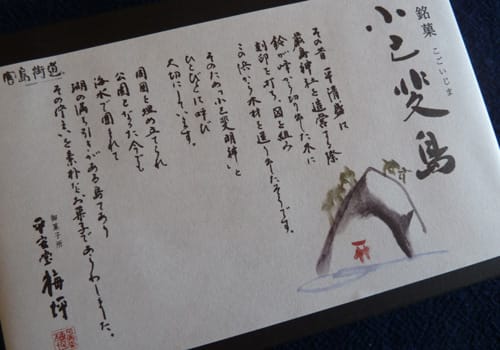 銘菓
こごいじま
小己斐島
その昔、平清盛は
厳島神社を造営する際
鈴が峰から切り出した木に
刻印を打ち、図を組み
この浜から木材を運ばせたそうです。
そのため「小己斐明神」と
ひとびとに呼び
大切にしています。
周囲を埋め立てられ
公園となった今でも
海水で囲まれて
潮の満ち引きがある島であり
その佇まいを素朴なお菓子であらわしました。
御菓子所
平安堂梅坪
宮島街道